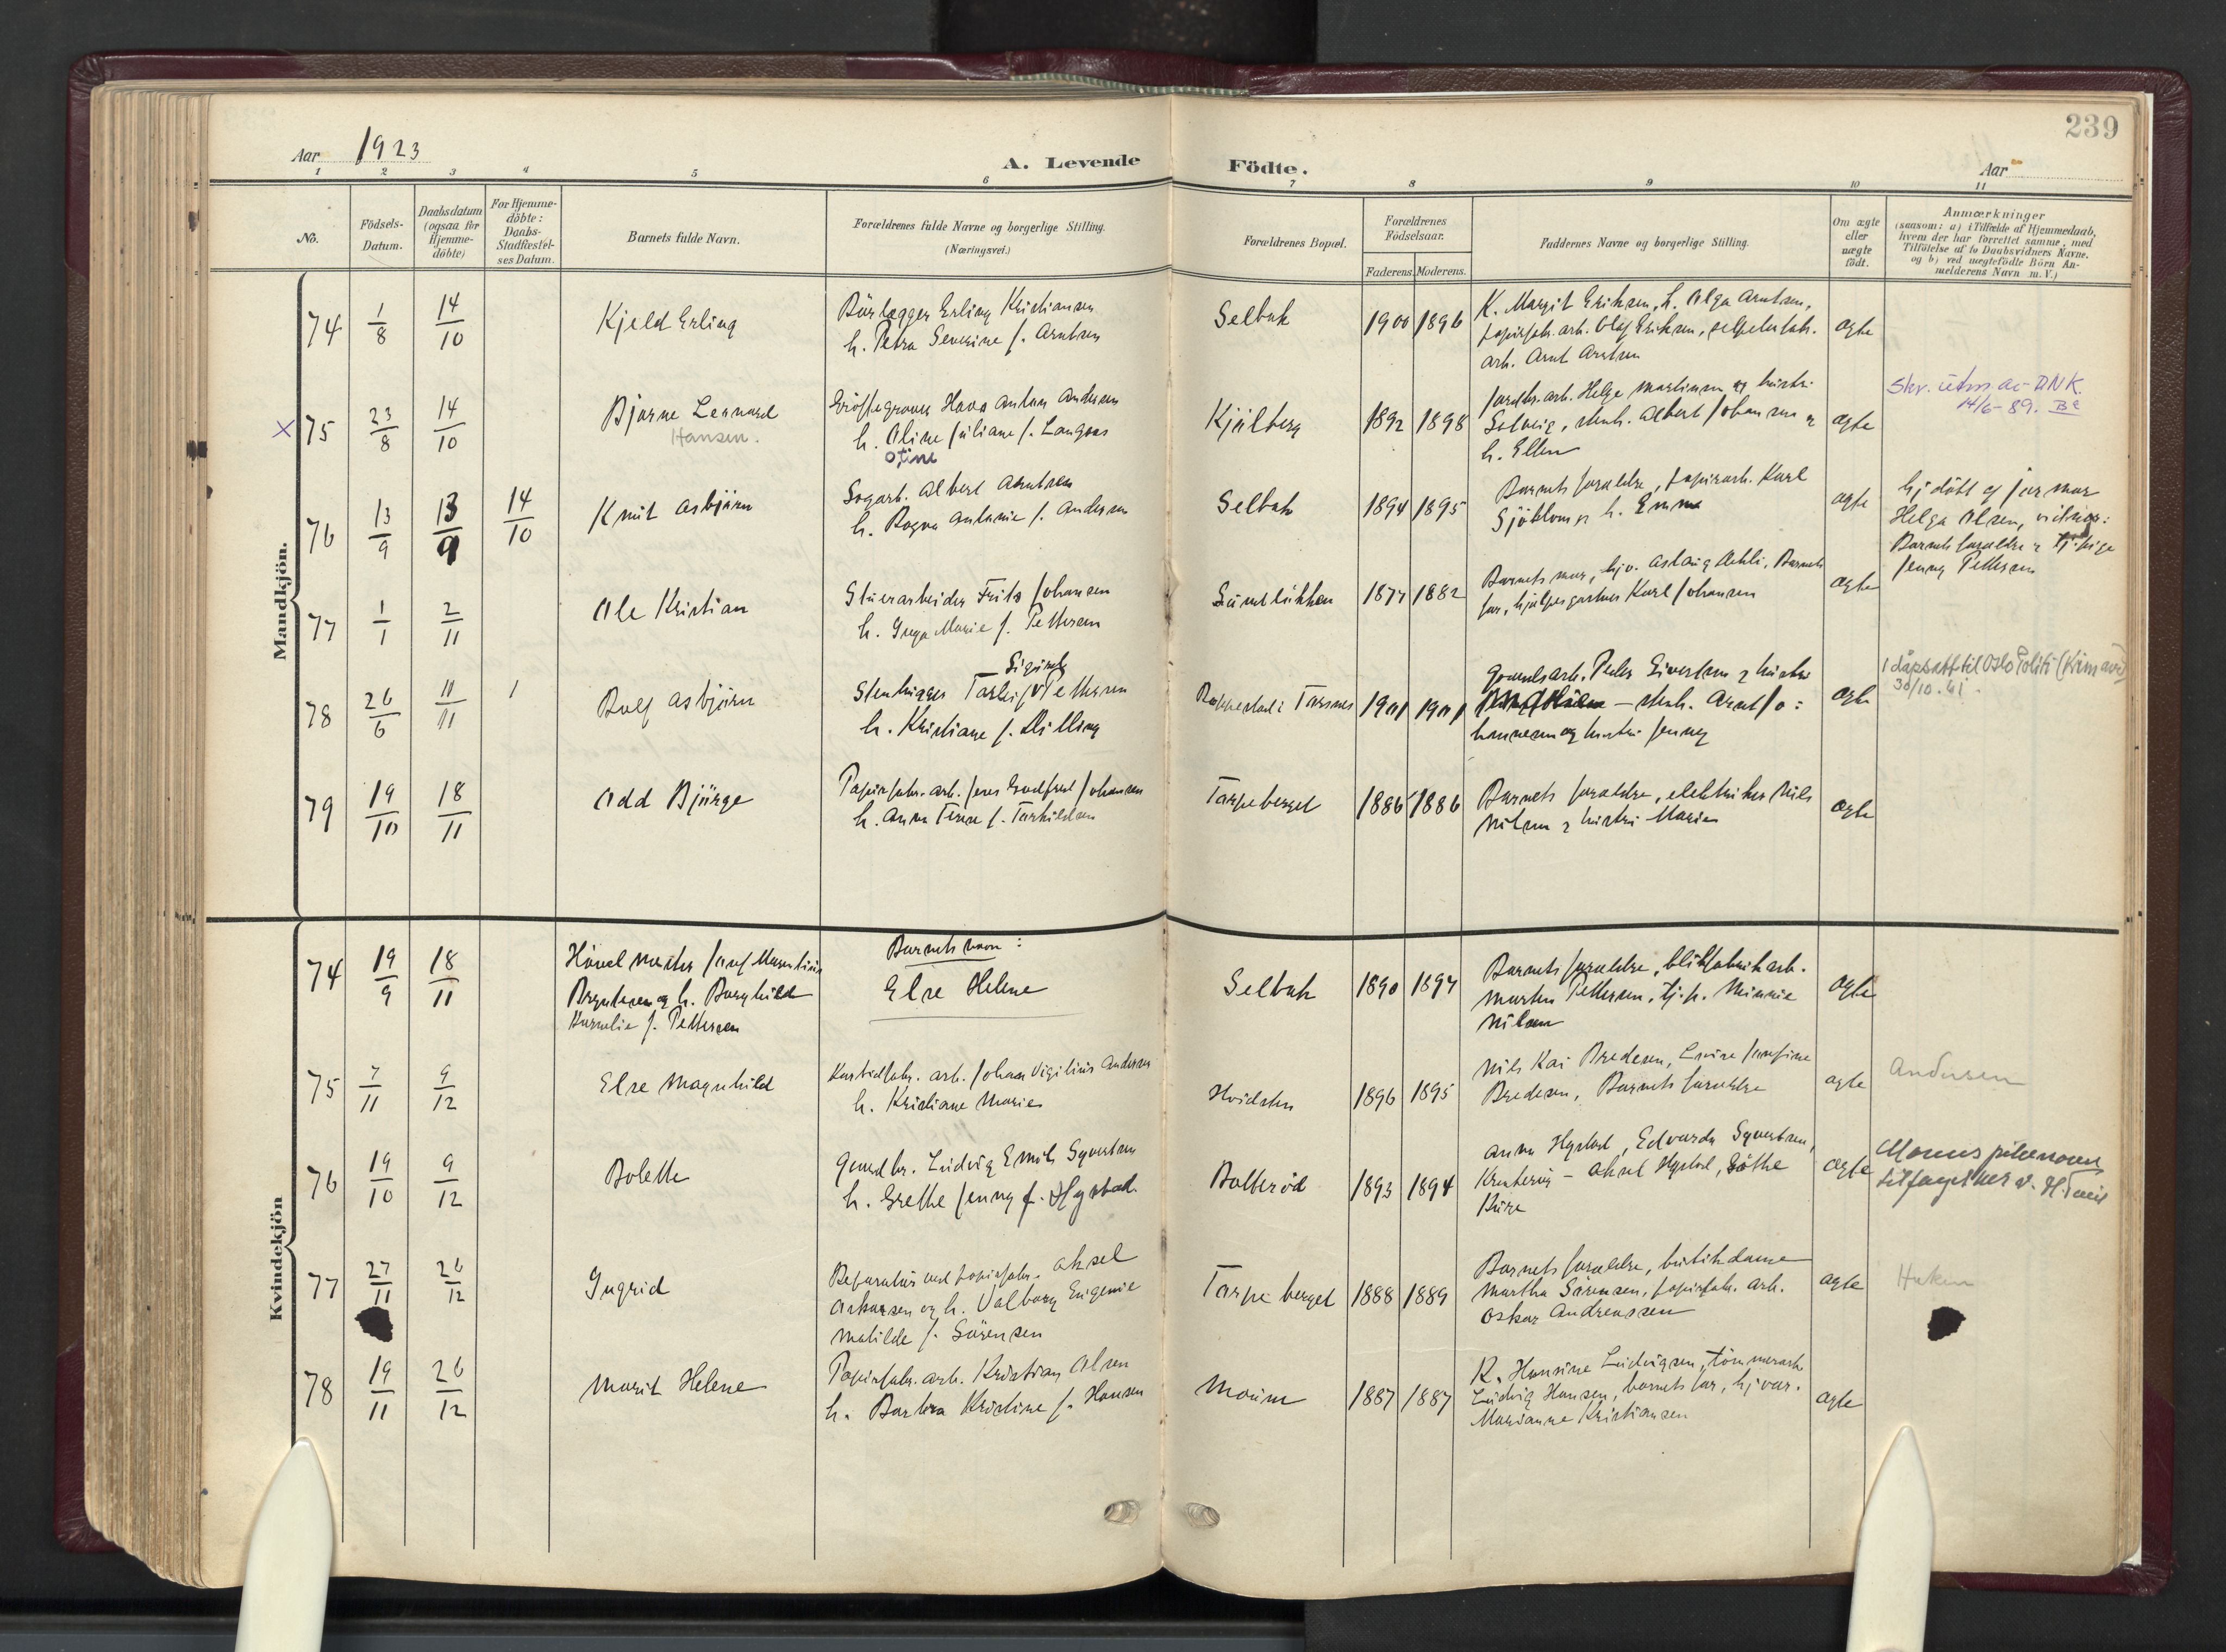 239
Aar 1923
A. Levende Födte.
Aar
1 2 3 4 5 6 7 8 9 10 11
No.
Födsels-
Datum.
Daabsdatum
(ogsaa for
Hjemme-
döbte)
For Hjemme-
döbte:
Daabs-
Stadfæstel-
ses Datum.
Barnets fulde Navn.
Forældrenes fulde Navne og borgerlige Stilling.
(Næringsvei.)
Forældrenes Bopæl.
Forældrenes
Födselsaar.
Faderens. Moderens.
Faddernes Navne og borgerlige Stilling.
Om ægte
eller
uægte
födt.
Anmærkninger
(saasom: a) i Tilfælde af Hjemmedaab,
hvem der har forrettet samme, med
Tilföielse af to Daabsvidners Navne.
og b) ved uægtefödte Börn An-
melderens Navn m. V.)
Mandkjön.
74 1/8 14/10
Kjeld Erling
Erling Kristiansen
h. Petra Severine f. Arntsen
Selbak
1900 1896
K. Margit Eriksen, h. Olga Arntsen,
papirfabr. arb. Olaf Eriksen,
arb. Arnt Arntsen
ægte
X 75 23/8 14/10
Bjarne Lennard
Hansen.
Grøftegraver Hans Anton Andersen
h. Oline Juliane f. Langaas
Otine
Kjølberg
1892 1898
arb. Helge Martinsen og hustru
Solveig, stenh. Albert Johansen og
h. Ellen
ægte
Skr. utm. av DNK
14/6-89. Be
76 13/9 13/9 14/10
Knut Asbjørn
Sagarb. Albert Arntsen
h. Ragna Antonie f. Andersen
Selbak
1894 1895
Barnets forældre, papirarb. Karl
Sjöblom og h. Emma
ægte
hj.döbt af jormor
Helga Olsen, vidner:
Barnets forældre og tj.pige
Jenny Pettersen
77 1/1 2/11
Ole Kristian
Stuerarbeider Fritz Johansen
h. Inga Marie f. Pettersen
Sundløkken
1877 1882
Barnets mor, hjv. Aslaug Dehli, Barnets
far, hjelpegartner Karl Johansen
ægte
78 26/6 11/11 1
Rolf Asbjørn
Sigurd
Stenhugger Torleif Pettersen
h. Kristiane f. Dilling
Roppestad i Torsnes
1901 1901
Gaardsarb. Peder Sivertsen og hustru
– stenh. Arnt Jo:
hannesen og hustru Jenny
ægte
1 dåpsatt til Oslo Politi (Krim avd)
30/10.61.
79 19/10 18/11
Odd Bjørge
Papirfabr. arb. Jens Godfred Johansen
h. Anna Terese f. Torkildsen
Torpeberget
1886 1886
Barnets forældre, elektriker Nils
Nilsen og hustru Marie
ægte
Kvindekjön
74 19/9 18/11
Høvelmester Josef Marentius
Bryntesen og h. Borghild
Kornelia f. Pettersen
Barnets navn:
Else Helene
Selbak
1890 1897
Barnets forældre, blikfabrikarb.
Morten Pettersen, tj.p. Minnie
Nilsen
ægte
75 7/11 9/12
Else Magnhild
Karbidfabr. arb. Johan Vigilius Andersen
h. Kristiane Marie
Hvidsten
1896 1895
Nils Kai Bredesen, Louise Josefine
Bredesen, Barnets forældre
ægte
Andersen
76 19/10 9/12
Bolette
Gaardbr. Ludvig Emil Syvertsen
h. Grethe Jenny f. Hystad.
Bolteröd
1893 1894
Anna Hystad, Edvarda Syvertsen,
– Aksel Hystad, Göthe
ægte
Morens pikenavn
77 27/11 26/12
Ingrid
Reparatør ved papirfabr. Aksel
Oskarsen og h. Valborg Eugenie
Matilde f. Sörensen
Torpeberget
1888 1889
Barnets forældre, butikdame
Martha Sörensen, papirfabr. arb.
Oskar Andreassen
ægte
78 19/11 26/12
Marit Helene
Papirfabr. arb. Kristian Olsen
h. Barbra Kristine f. Hansen
Moum
1887 1887
K. Hansine Ludvigsen, tömmerarb.
Ludvig Hansen, barnets far, hj.var.
Marianne Kristiansen
ægte